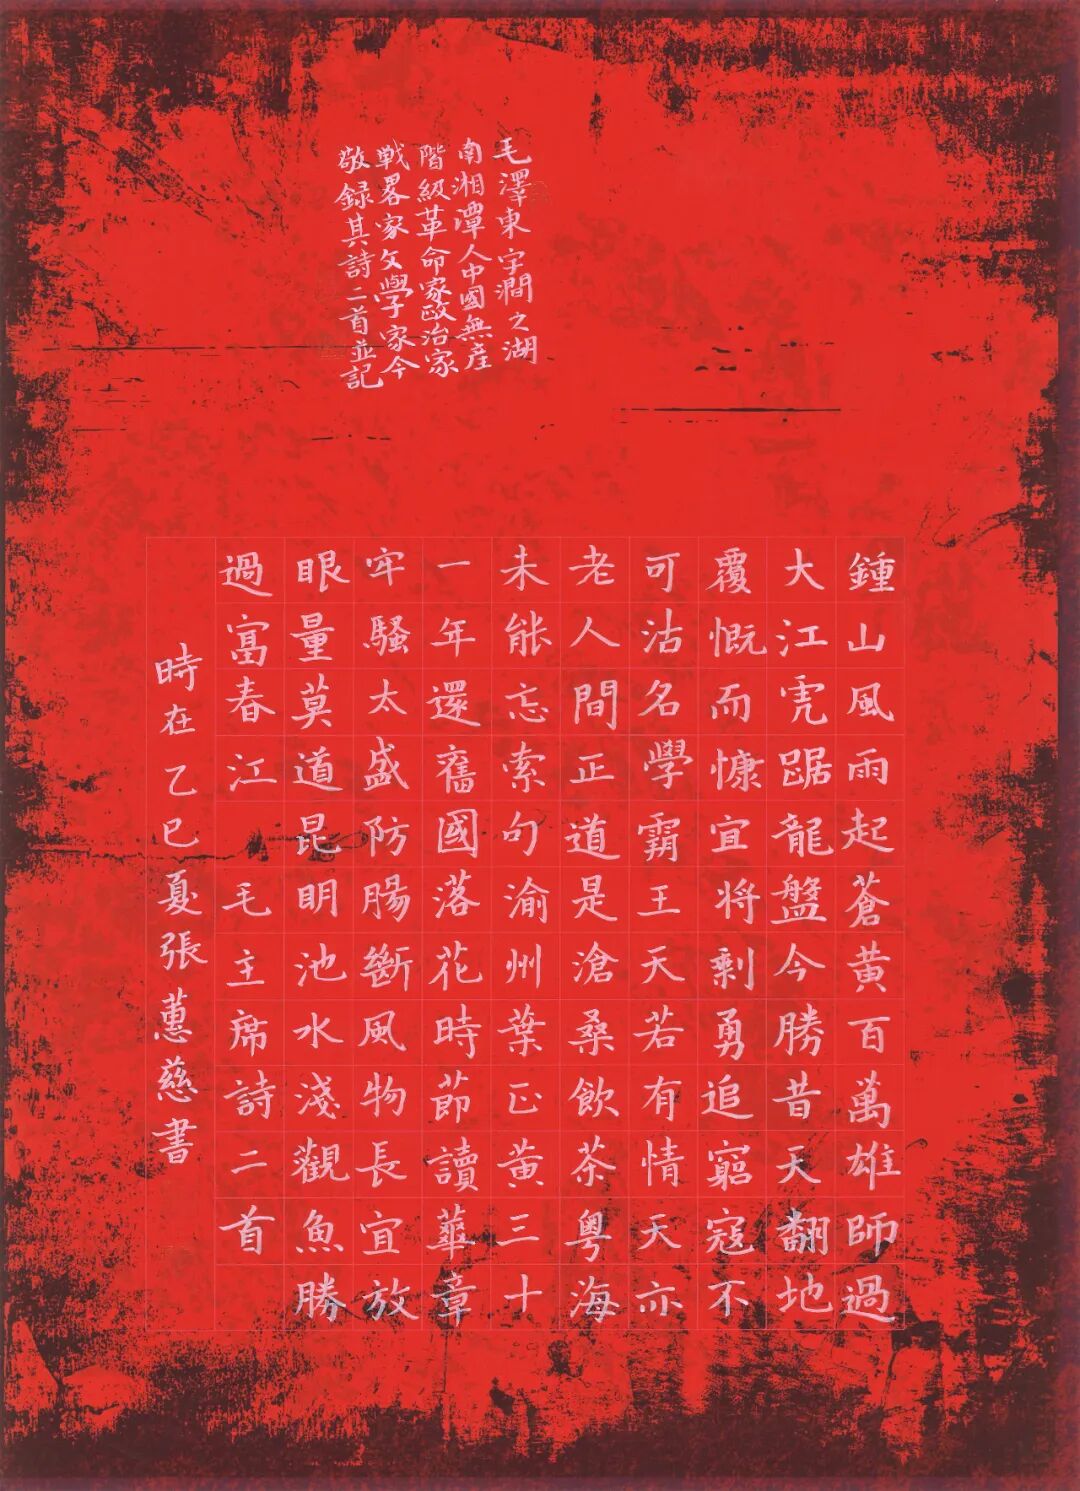 毛澤東字潤之湖
南湘潭人中國無產
階級革命家政治家
戰畧家文學家今
敬録其詩二首並記
鍾山風雨起蒼黃百萬雄師過
大江虎踞龍盤今勝昔天翻地
覆慨而慷宜將剩勇追窮寇不
可沽名學霸王天若有情天亦
老人間正道是滄桑飲茶粵海
未能忘索句渝州葉正黃三十
一年還舊國落花時節讀華章
牢騷太盛防腸斷風物長宜放
眼量莫道昆明池水淺觀魚勝
過富春江 毛主席詩二首
時在乙巳夏張蕙慈書